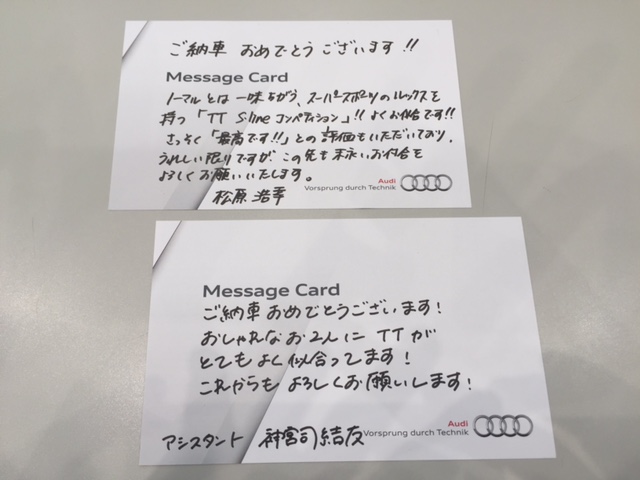 ご納車 おめでとうございます!!
Message Card
ノーマルとは一味ちがう、スーパースポーツのルックスを
持つ「TT S-line コンペティション」!! よくお似合です!!
さっそく「最高です!!」との評価もいただいており、
うれしい限りですが この先も末永いお付合を
よろしくお願いいたします。
松原 浩幸
Audi
Vorsprung durch Technik
Message Card
ご納車おめでとうございます!
おしゃれなお2人に TTが
とてもよく似合ってます!
これからも よろしくお願いします!
アシスタント 神宮司結友
Audi
Vorsprung durch Technik